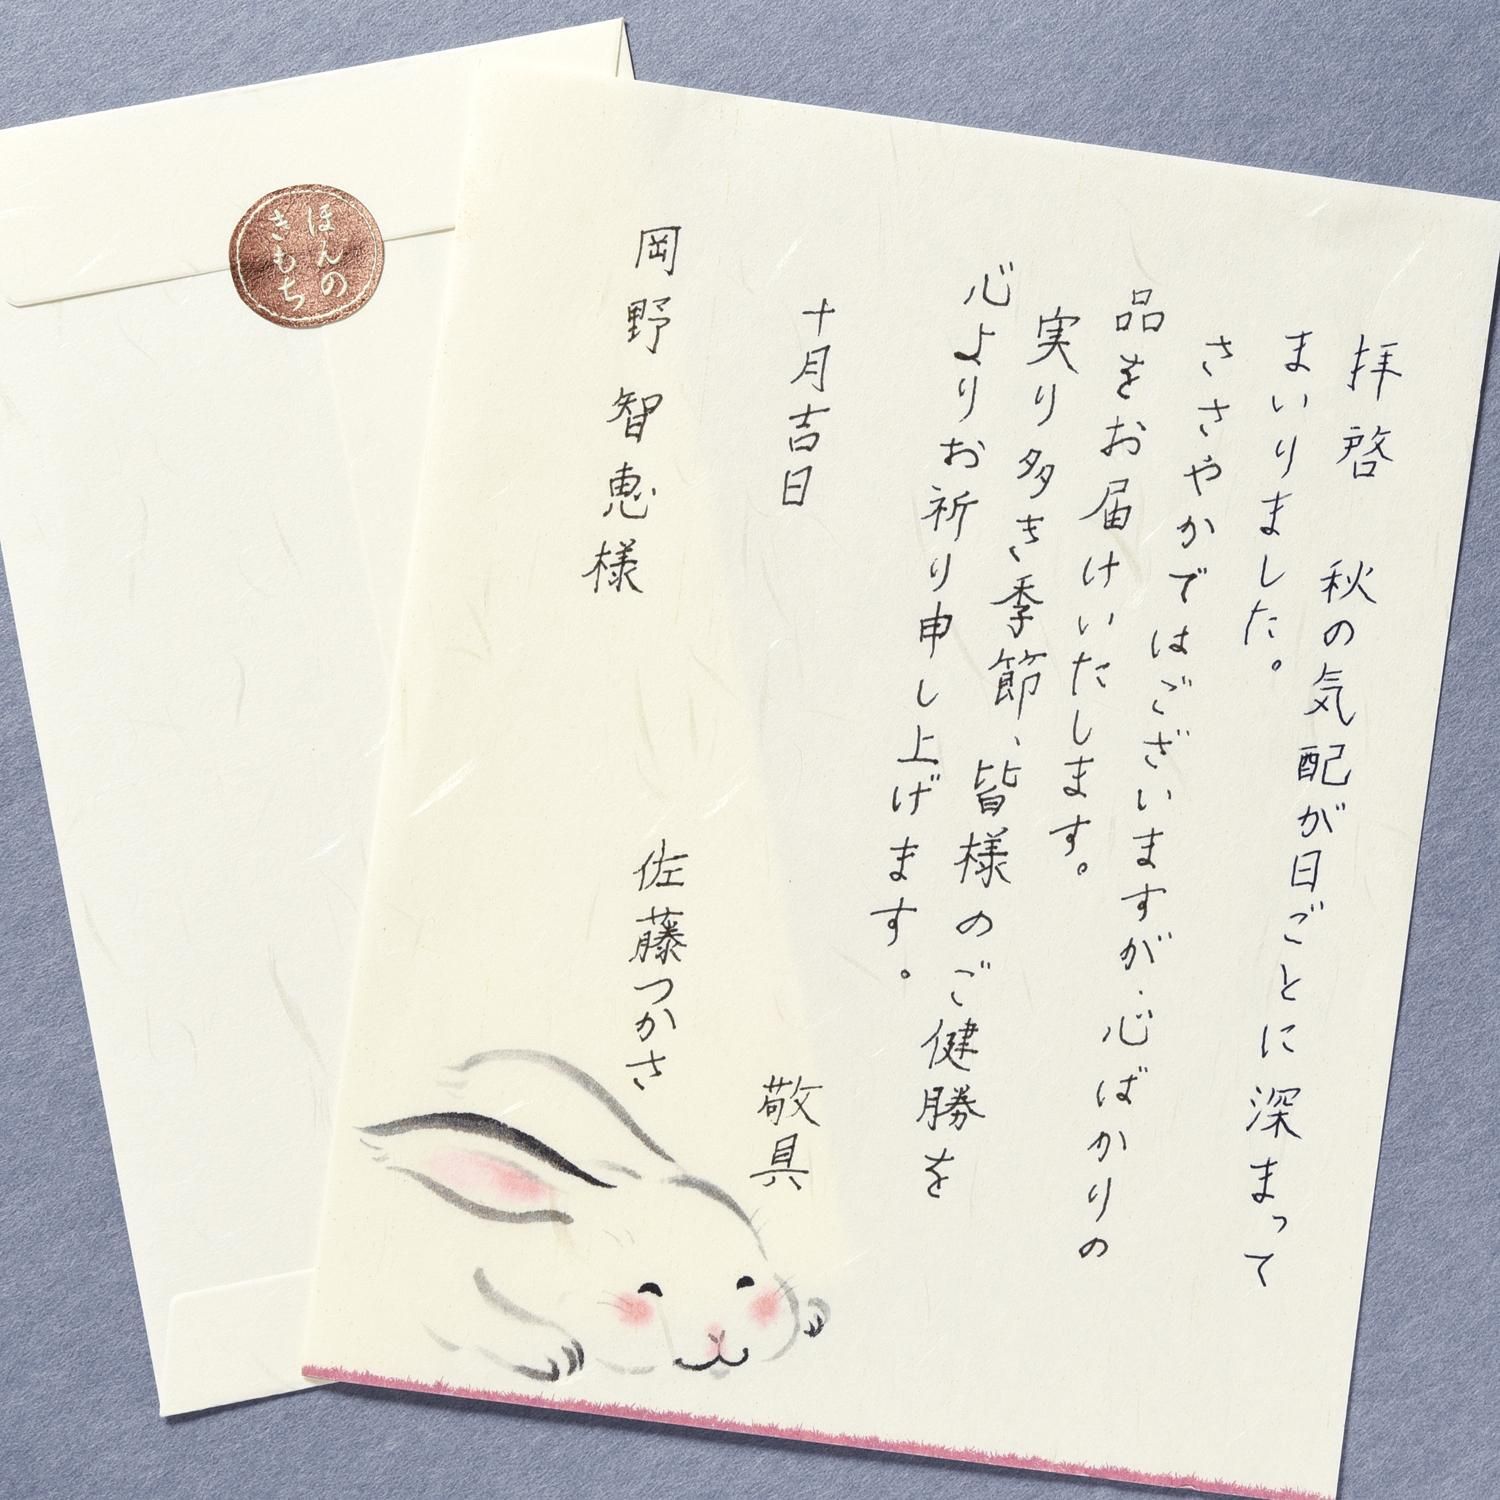 拝啓　秋の気配が日ごとに深まって
まいりました。
ささやかではございますが、心ばかりの
品をお届けいたします。
実り多き季節、皆様のご健勝を
心よりお祈り申し上げます。
敬具
十月吉日
佐藤つかさ
岡野智恵様
ほんの
きもち